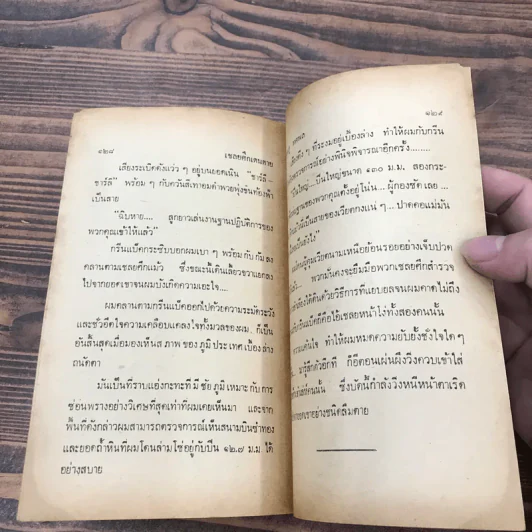 ๑๒๘
เชลยศึกเดนตาย
เสียงระเบิดดังแว่ว ๆ อยู่บนยอดเนิน "ชาร์ลี -
ชาร์ลี" พร้อม ๆ กับควันสีเทาอมดำพวยพุ่งขึ้นท้องฟ้า
เป็นสาย
"ฉิบหาย.... ลูกยาวเล่นงานฐานปฏิบัติการของ
พวกคุณเข้าให้แล้ว"
กรีนแบ็คกระซิบบอกผมเบา ๆ พร้อมกับก้มลง
คลานตามเชลยศึกแม้ว ซึ่งขณะนี้เดินเลี้ยวขวาแยกลง
ไปจากยอดเขาจนผมบังเกิดความเอะใจ....
ผมคลานตามกรีนแบ็คออกไปด้วยความระมัดระวัง
และชั่วอึดใจความเคลือบแคลงใจทั้งมวลของผม ก็เป็น
อันสิ้นสุดเมื่อมองเห็นสภาพของภูมิประเทศเบื้องล่าง
ถนัดตา
มันเป็นที่ราบแอ่งกะทะที่มีชัยภูมิเหมาะกับการ
ซ่อนพรางอย่างวิเศษที่สุดเท่าที่ผมเคยเห็นมา และจาก
พื้นที่ดังกล่าวผมสามารถตรวจการณ์เห็นสนามบินซำทอง
และยอดถ้ำหินที่ผมโดนล่ามโซ่อยู่กับปืน ๑๒.๗ ม.ม. ได้
อย่างสบาย
๑๒๙
ๆ ที่ระงมอยู่เบื้องล่าง ทำให้ผมกับกรีน
ตรวจการณ์อย่างพินิจพิจารณาอีกครั้ง........
ปืนใหญ่...ปืนใหญ่ขนาด ๑๓๐ ม.ม. สองกระ-
ฐานของพวกคุณตั้งอยู่โน่น... ผู้กองชัดเลย...
เป็นสายของเวียดกงแน่ ๆ... ปาดคอแม่มัน
ผู้คุมเวียดนามเหนือย้อนรอยอย่างเจ็บปวด
พวกมันคงจะยิ้มมือพวกเชลยศึกสำรวจ
ด้วยวิธีการที่แยบยลจนผมคาดไม่ถึง
กรีนแบ็คก็คือไอ้เชลยหน้าโง่ทั้งสองคนนั้น
ความแค้นใจ ทำให้ผมหมดความยับยั้งชั่งใจใด ๆ
รู้สึกตัวอีกที ก็อีตอนเผ่นผึงวิ่งควบเข้าใส่
คนนั้น ซึ่งบัดนี้กำลังวิ่งหนีหน้าตาเริด
เขาอย่างชนิดลืมตาย